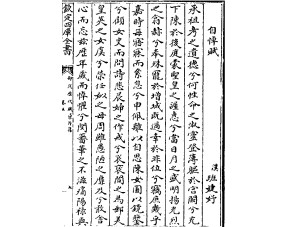 自悼賦
漢 班婕妤
承祖考之遺德兮何性命之淑靈登薄軀於宮闕兮充
下陳於後庭蒙聖皇之渥惠兮當日月之盛明揚光烈
之翕赫兮奉隆寵於增城既過幸於非位兮竊庶幾乎
嘉時每寤寐而絫息兮申佩離以自思陳女圖以鏡監
兮顧女史而問詩悲晨婦之作戒兮哀褒閻之為郵美
皇英之女虞兮榮任姒之母周雖愚陋其靡及兮敢舍
心而忘兹歷年歲而悼懼兮閔蕃華之不滋痛陽祿與
欽定四庫全書